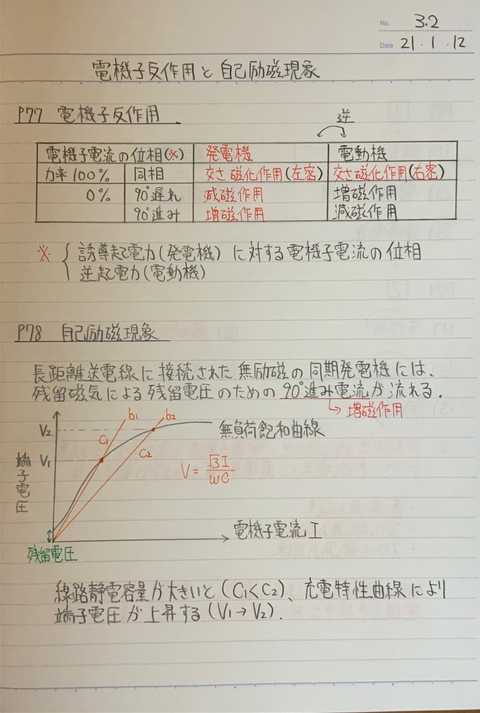 No. 3.2
Date 21・1・12
電機子反作用と自己励磁現象
P77 電機子反作用
逆
電機子電流の位相(※) 発電機 電動機
力率100% 同相 交さ磁化作用(左密) 交さ磁化作用(右密)
0% 90°遅れ 減磁作用 増磁作用
90°進み 増磁作用 減磁作用
※ { 誘導起電力(発電機) に対する電機子電流の位相
逆起電力(電動機)
P78 自己励磁現象
長距離送電線に接続された無励磁の同期発電機には、
残留磁気による残留電圧のための90°進み電流が流れる.
↳ 増磁作用
b1 b2
V2 無負荷飽和曲線
C1 C2
V1
V = √3I/ωC
端子電圧
電機子電流 I
残留電圧
線路静電容量が大きいと (C1<C2)、充電特性曲線により
端子電圧が上昇する (V1→V2).